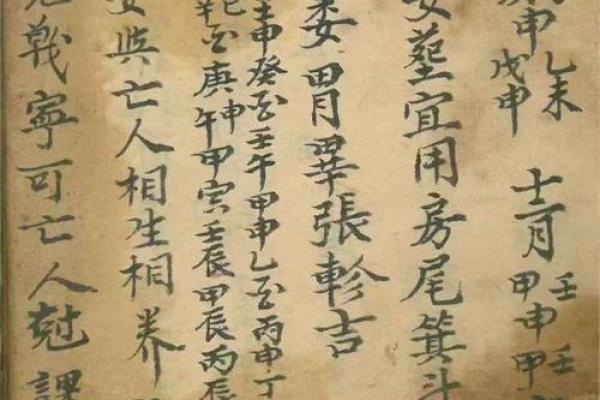 申乙未
戊申
十二月
壬壬
甲申甲
安葬宜用房尾箕斗
婁胃畢張軫吉
壬申癸酉壬午甲申乙酉丙申丁
酉庚申午甲寅壬辰甲辰丙辰
與亡人相生相养
戰寧可亡人尅課